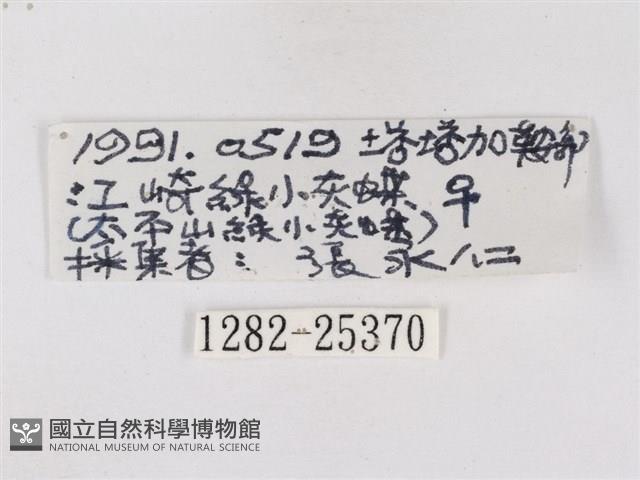 1991.0519 塔塔加鞍部
江崎綠小灰蝶 ♀
(太平山綠小灰蝶)
採集者: 張永仁
1282-25370
國立自然科學博物館
NATIONAL MUSEUM OF NATURAL SCIENCE